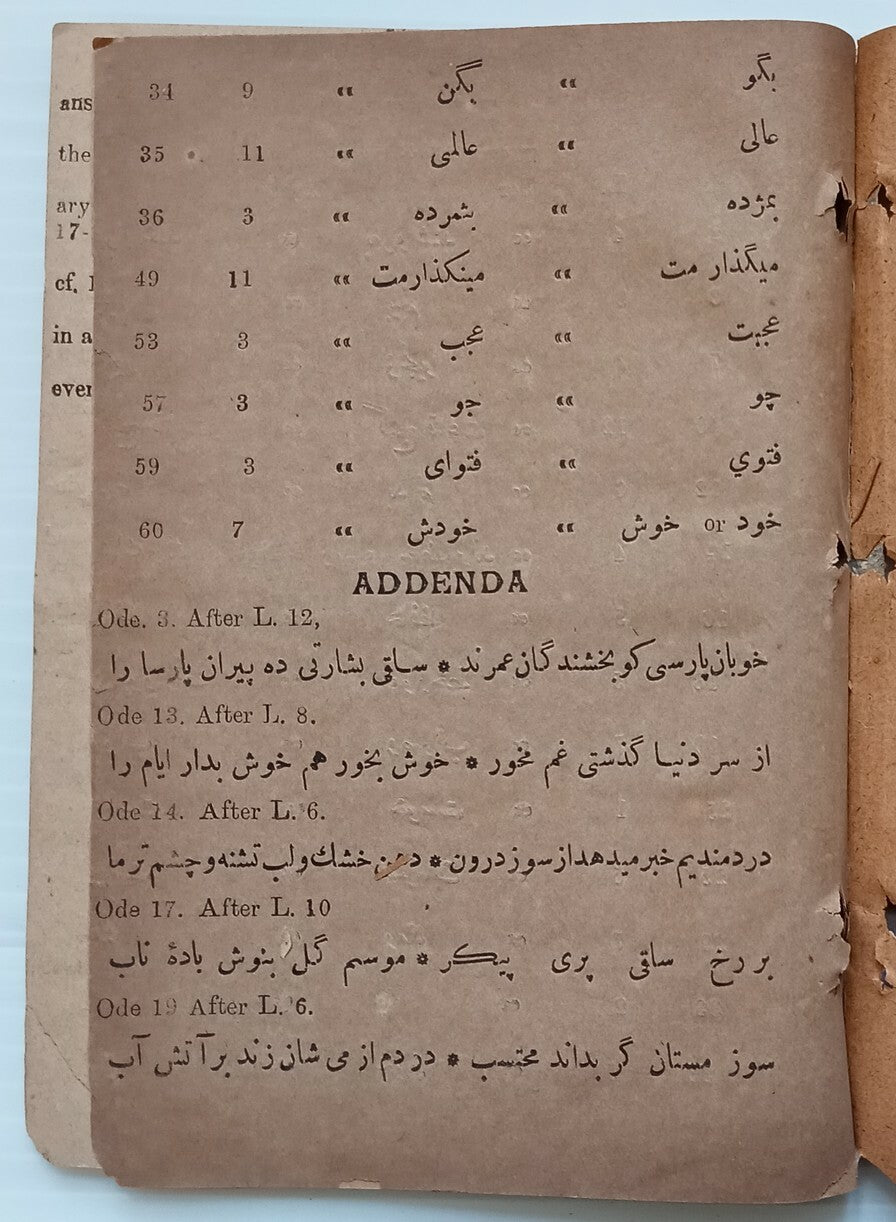 34 9 " بگن " بگو
35 11 " عالمی " عالی
36 3 " بثمرده " بمژده
49 11 " مینکذارمت " میگذار مت
53 3 " عجب " عجبت
57 3 " جو " چو
59 3 " فتوای " فتوي
60 7 " خودش " خوش or خود
ADDENDA
Ode. 3. After L. 12,
خوبان پارسی کو بخشندگان عمر ند * ساقی بشارتی ده پیران پارسا را
Ode 13. After L. 8.
از سر دنیا گذشتی غم مخور * خوش بخور هم خوش بدار ایام را
Ode 14. After L. 6.
دردمندیم خبر میدهد از سوز درون * دهن خشك ولب تشنه وچشم تر ما
Ode 17. After L. 10
بر رخ ساقی پری پیکر * موسم گل بنوش بادهٔ ناب
Ode 19 After L. 6.
سوز مستان گر بداند محتسب * در دم از می شان زند بر آتش آب
ans
the
ary
17-
cf.
in a